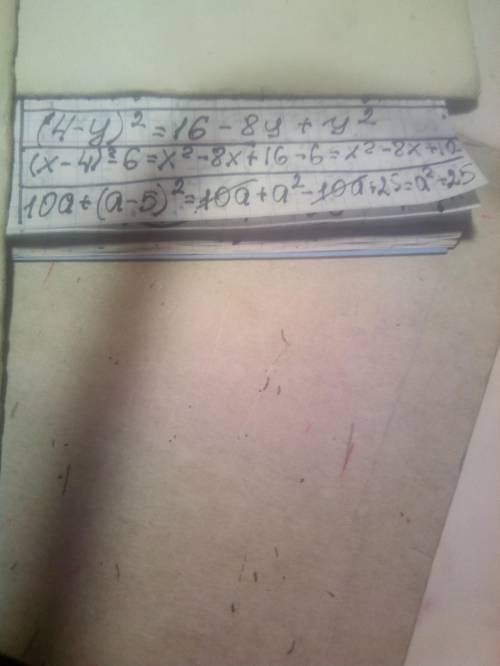 (4-y)² = 16 - 8y + y²
(x-4)² - 6 = x² - 8x + 16 - 6 = x² - 8x + 10
10a + (a-5)² = 10a + a² - 10a + 25 = a² + 25